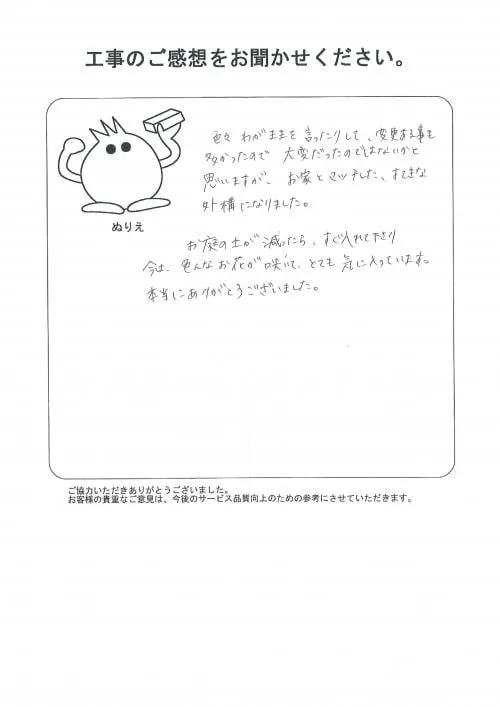 工事のご感想をお聞かせください。
色々 わがままを 言ったりして、変更ある事も
多かったので 大変だったのではないかと
思いますが、お家とマッチした、すてきな
外構になりました。
ぬりえ
お庭の土が 減ったら、すぐ入れて下さり
今は、色んなお花が咲いて、とても 気に入っています。
本当にありがとうございました。
ご協力いただきありがとうございました。
お客様の貴重なご意見は、今後のサービス品質向上のための参考にさせていただきます。